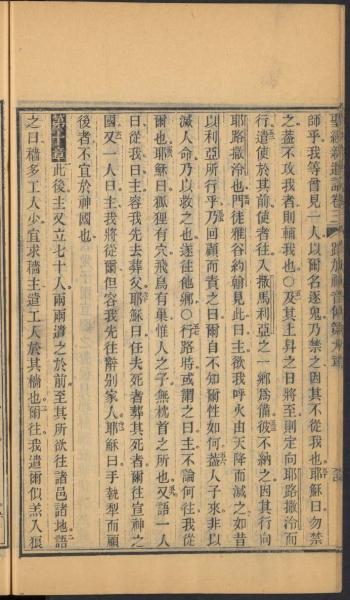 聖經新遺詔卷三 路加福音傳第九章
師乎我等曾見一人以爾名逐鬼乃禁之因其不從我也耶穌曰勿禁
之蓋不攻我者則輔我也〇及其上昇之日將至則定向耶路撒冷而
行遣使於其前使者往入撒馬利亞之一鄉為備彼不納之因其行向
耶路撒冷也門徒雅谷約翰見此曰主欲我呼火由天降而滅之如昔
以利亞所行乎乃回顧而責之曰爾自不知爾性如何蓋人子來非以
滅人命乃以救之也遂往他鄉〇行路時或謂之曰主不論何往我從
爾也耶穌曰狐狸有穴飛鳥有巢惟人之子無枕首之所也又語一人
曰從我曰主容我先去葬父耶穌曰任夫死者葬其死者爾往宣神之
國又一人曰主我將從爾但容我先往辭别家人耶穌曰手執犁而顧
後者不宜於神國也
第十章此後主又立七十人兩兩遣之於前至其所欲往諸邑諸地語
之曰穡多工人少宜求穡主遣工人於其穡也爾往我遣爾似羔入狼